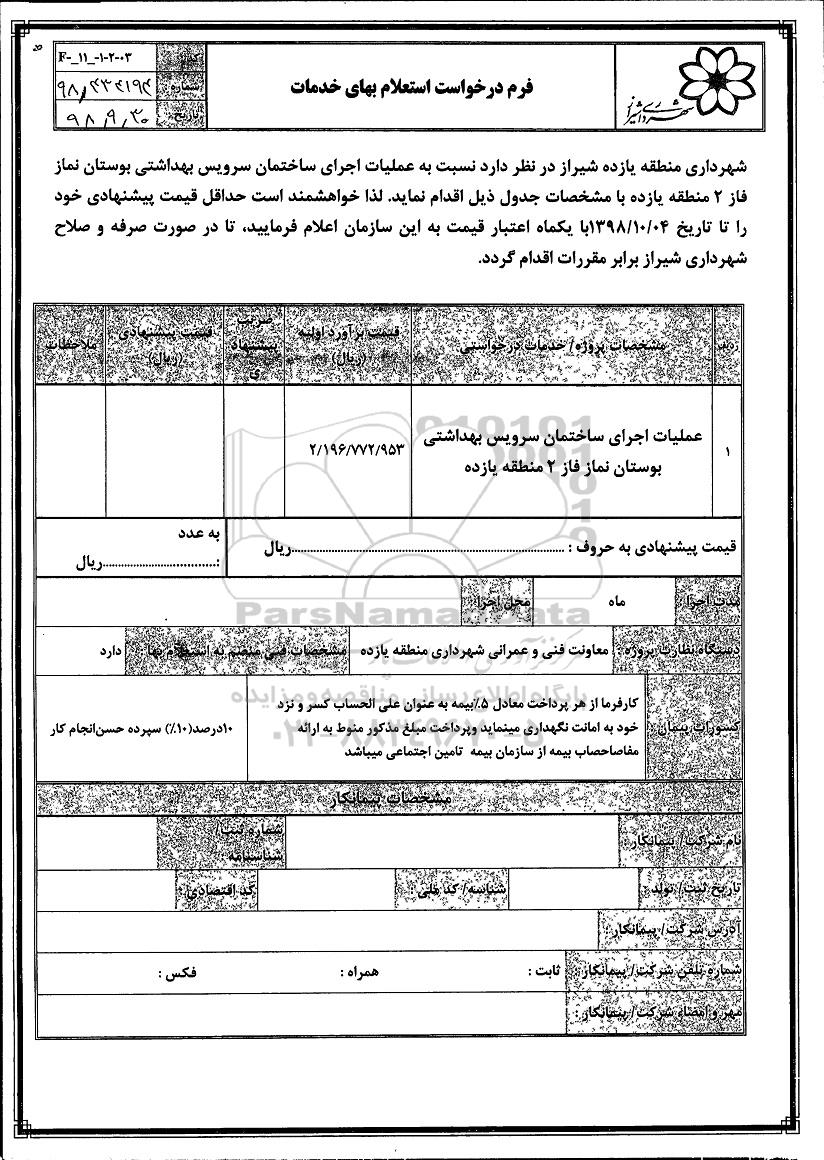 شهرداری شیراز
فرم درخواست استعلام بهای خدمات
کد: F-_۱۱_-۱-۲-۰۳
شماره:
تاریخ: ۹۸,۹,۳۰
شهرداری منطقه یازده شیراز در نظر دارد نسبت به عملیات اجرای ساختمان سرویس بهداشتی بوستان نماز
فاز ۲ منطقه یازده با مشخصات جدول ذیل اقدام نماید. لذا خواهشمند است حداقل قیمت پیشنهادی خود
را تا تاریخ ۱۳۹۸/۱۰/۰۴با یکماه اعتبار قیمت به این سازمان اعلام فرمایید، تا در صورت صرفه و صلاح
شهرداری شیراز برابر مقررات اقدام گردد.
ردیف
مشخصات پروژه/ خدمات درخواستی
قیمت برآورد اولیه
(ریال)
ضریب
پیشنهاد
ی
قیمت پیشنهادی
(ریال)
ملاحظات
۱
عملیات اجرای ساختمان سرویس بهداشتی
بوستان نماز فاز ۲ منطقه یازده
۲/۱۹۶/۷۷۲/۹۵۳
قیمت پیشنهادی به حروف : ....................ریال
به عدد
:....................ریال
مدت اجرا :
ماه
محل اجرا :
دستگاه نظارت پروژه :
معاونت فنی و عمرانی شهرداری منطقه یازده
مشخصات فنی منضم به استعلام بها :
دارد
کسورات پیمان :
کارفرما از هر پرداخت معادل ۵٪بیمه به عنوان علی الحساب کسر و نزد
خود به امانت نگهداری مینماید وپرداخت مبلغ مذکور منوط به ارائه
مفاصاحصاب بیمه از سازمان بیمه تامین اجتماعی میباشد
۱۰درصد(۱۰٪) سپرده حسن‌انجام کار
مشخصات پیمانکار
نام شرکت/ پیمانکار :
شماره ثبت/
شناسنامه :
تاریخ ثبت/ تولد :
شناسه/ کد ملی :
کد اقتصادی :
آدرس شرکت/ پیمانکار :
شماره تلفن شرکت/ پیمانکار :
ثابت :
همراه :
فکس :
مهر و امضاء شرکت/ پیمانکار :
ParsNamadData
پایگاه اطلاع رسانی مناقصه و مزایده
۰۲۱-۸۸۳۴۹۶۷۰-۵